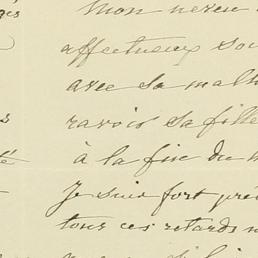 mon neveu
affectueux sou
avec sa malh
ravoir sa fille
à la fin du
Je suis fort pré
tous ces retards